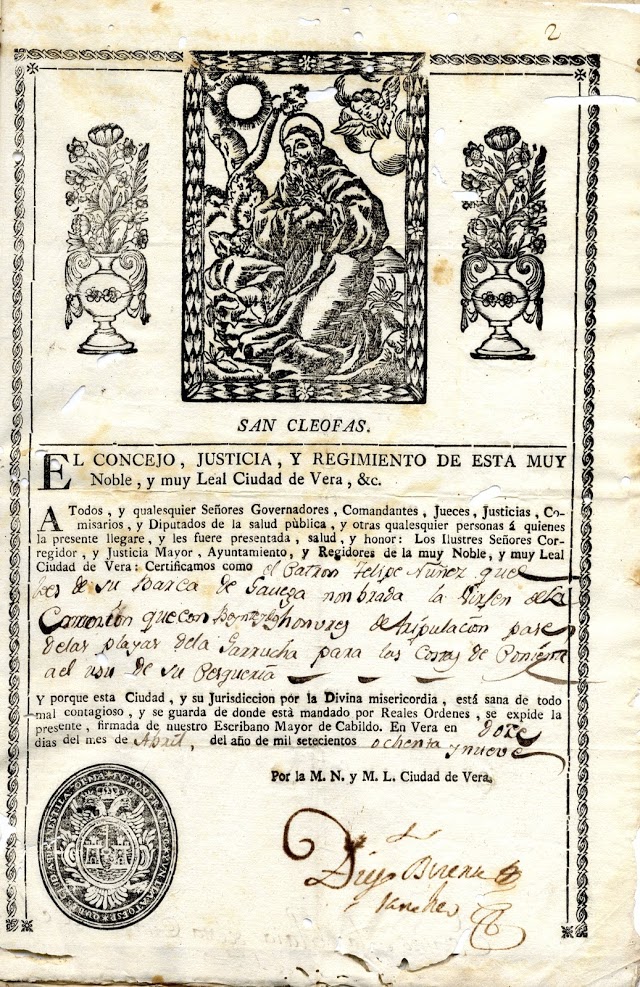 2
SAN CLEOFAS.
EL CONCEJO, JUSTICIA, Y REGIMIENTO DE ESTA MUY
Noble, y muy Leal Ciudad de Vera, &c.
A Todos, y qualesquier Señores Governadores, Comandantes, Jueces, Justicias, Co-
misarios, y Diputados de la salud pùblica, y otras qualesquier personas á quienes
la presente llegare, y les fuere presentada, salud, y honor: Los Ilustres Señores Cor-
regidor, y Justicia Mayor, Ayuntamiento, y Regidores de la muy Noble, y muy Leal
Ciudad de Vera: Certificamos como el Patron Felipe Nuñez que
de su Barca de nonbrada la Virjen de la
que con honvres de tripulacion pasa
de las playas de la Garrucha para las Costas de Poniente
a el uso de su Pesqueria
Y porque esta Ciudad, y su Jurisdiccion por la Divina misericordia, está sana de todo
mal contagioso, y se guarda de donde està mandado por Reales Ordenes, se expide la
presente, firmada de nuestro Escribano Mayor de Cabildo. En Vera en doze
dias del mes de Abril, del año de mil setecientos ochenta y nueve
Por la M. N. y M. L. Ciudad de Vera.